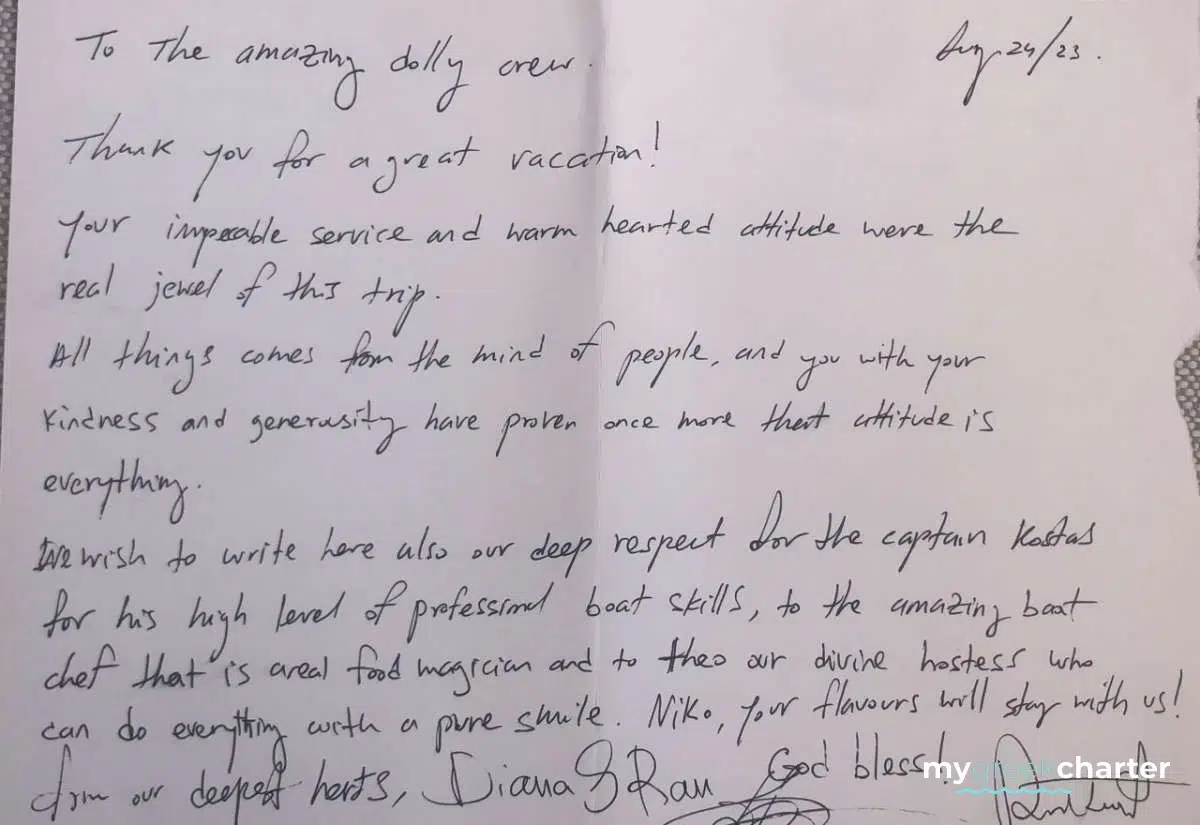 To The amazing dolly crew.
Aug 24/23.
Thank you for a great vacation!
Your impecable service and warm hearted attitude were the
real jewel of this trip.
All things comes from the mind of people, and you with your
kindness and generusity have proven once more that attitude is
everything.
We wish to write here also our deep respect for the captain Kostas
for his high level of professional boat skills, to the amazing boat
chef that is a real food magician and to theo our divine hostess who
can do everything with a pure smile. Niko, your flavours will stay with us!
from our deepest herts, Diana & Ran God bless!
mygreekcharter